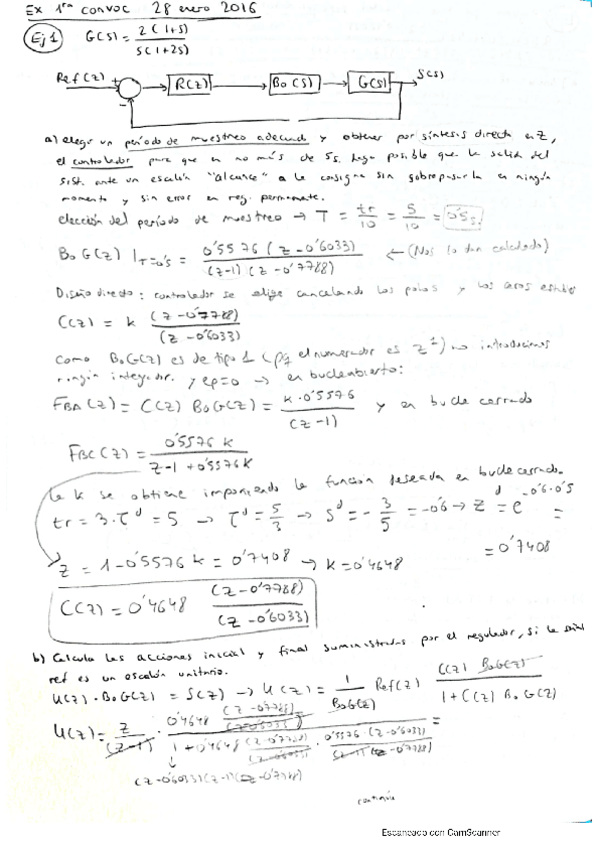 Ex 1ra convoc 28 enero 2016
Ej 1 G(s) = 2(1+s) / s(1+2s)
Ref(z) + - R(z) Bo(s) G(s) S(s)
a) elegir un período de muestreo adecuado y obtener por síntesis directa en z,
el controlador para que en no más de 5s. haga posible que la salida del
sist. ante un escalón "alcance" a la consigna sin sobrepasarla en ningún
momento y sin error en reg. permanente.
elección del período de muestreo → T = tr/10 = 5/10 = 0'5 s.
BoG(z) |T=0's = 0'5576 (z - 0'6033) / (z-1)(z - 0'7788) ← (Nos lo dan calculado)
Diseño directo: controlador se elige cancelando los polos y los ceros estables
C(z) = k (z - 0'7788) / (z - 0'6033)
Como BoG(z) es de tipo 1 (pq el numerador es z¹) no introducimos
ningún integrador. y ep=0 → en bucle abierto:
FBA(z) = C(z) BoG(z) = k·0'5576 / (z-1) y en bucle cerrado
FBC(z) = 0'5576 k / z-1+0'5576k
la k se obtiene imponiendo la función deseada en bucle cerrado.
tr = 3·τd = 5 → τd = 5/3 → sd = -3/5 = -0'6 → zd = e^-0'6·0'5 =
= 0'7408
z = 1-0'5576k = 0'7408 → k = 0'4648
C(z) = 0'4648 (z-0'7788) / (z-0'6033)
b) Calcula las acciones inicial y final suministradas por el regulador, si la señal
ref es un escalón unitario.
U(z)·BoG(z) = S(z) → U(z) = 1/BoG(z) Ref(z) C(z) BoG(z) / 1+C(z) BoG(z)
U(z) = z/(z-1) · 0'4648 (z-0'7785)/(z-0'6033) / 1+0'4648 (z-0'7788)/(z-0'6033) · 0'5576·(z-0'6033)/(z-1)(z-0'7788) =
(z-0'6033)(z-1)(z-0'7788)
continúa
Escaneado con CamScanner